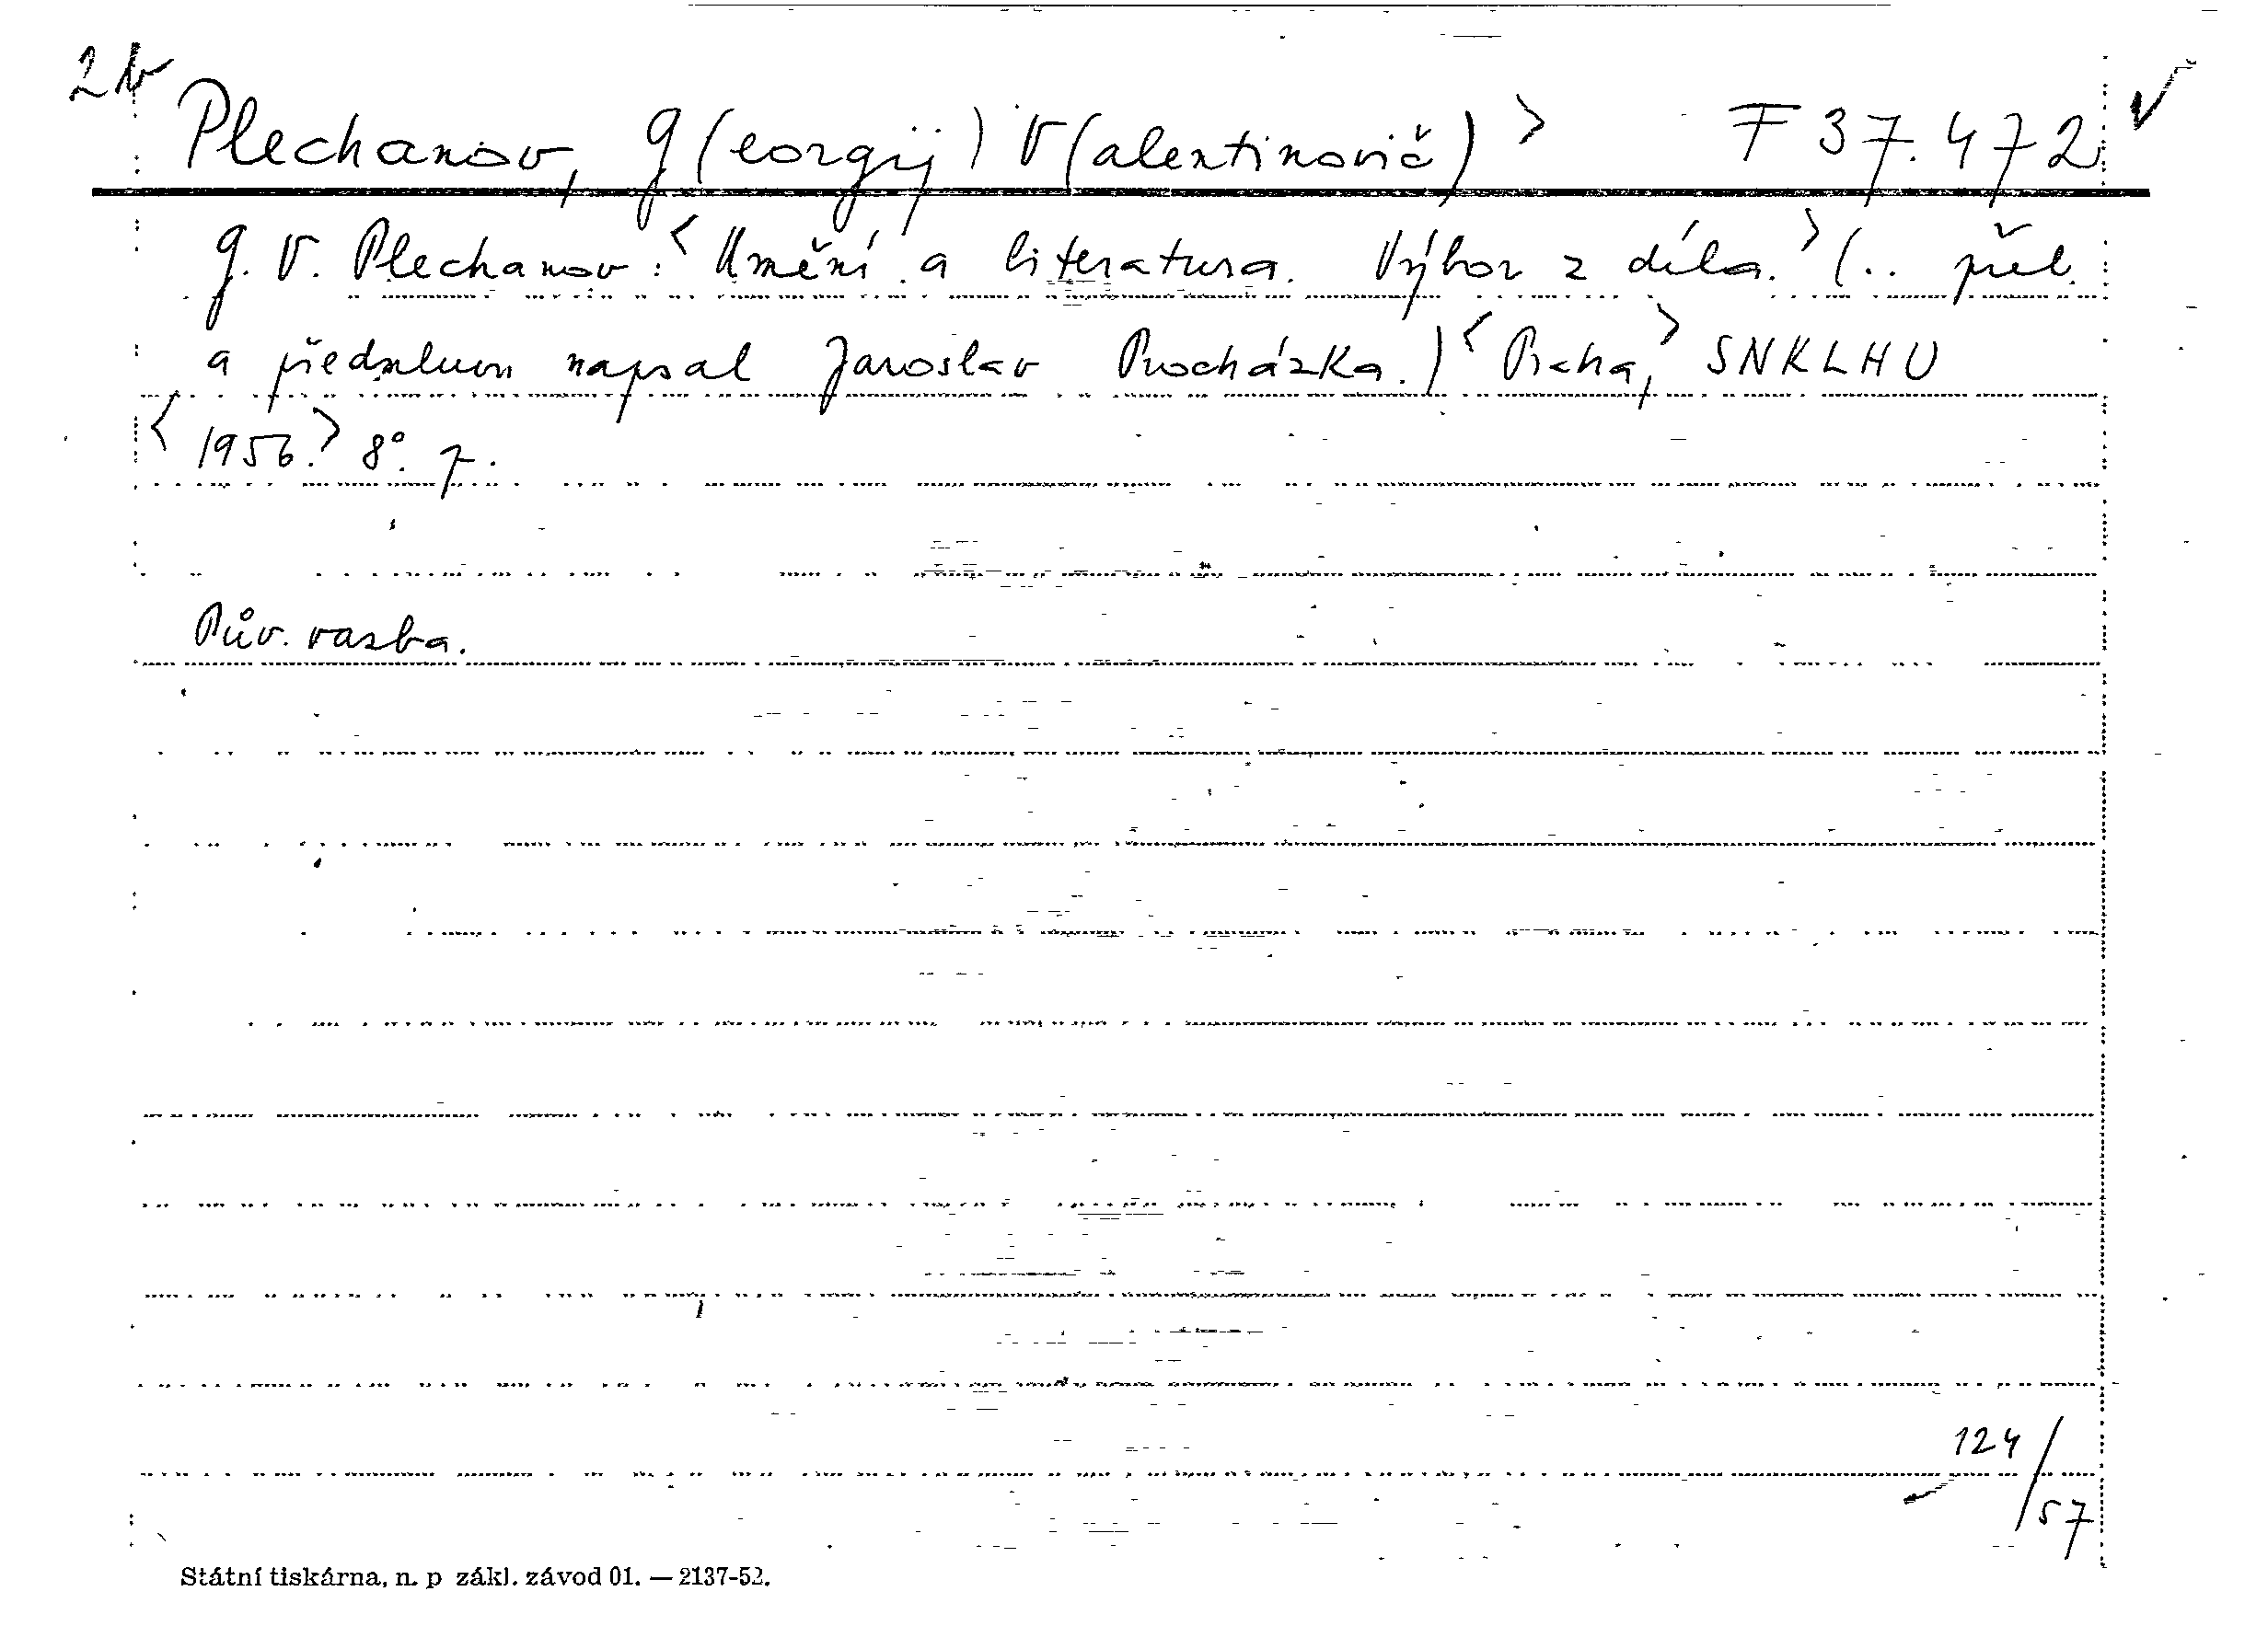 2b
Plechanov, G(eorgij) V(alentinovič) > F 37.472 √
G. V. Plechanov: <Umění a literatura. Výbor z díla.> (.. přel.
a předmluvu napsal Jaroslav Procházka.) <Praha,> SNKLHU
<1956.> 8°. 7.
Pův. vazba.
124/57
Státní tiskárna, n. p zákl. závod 01. — 2137-52.